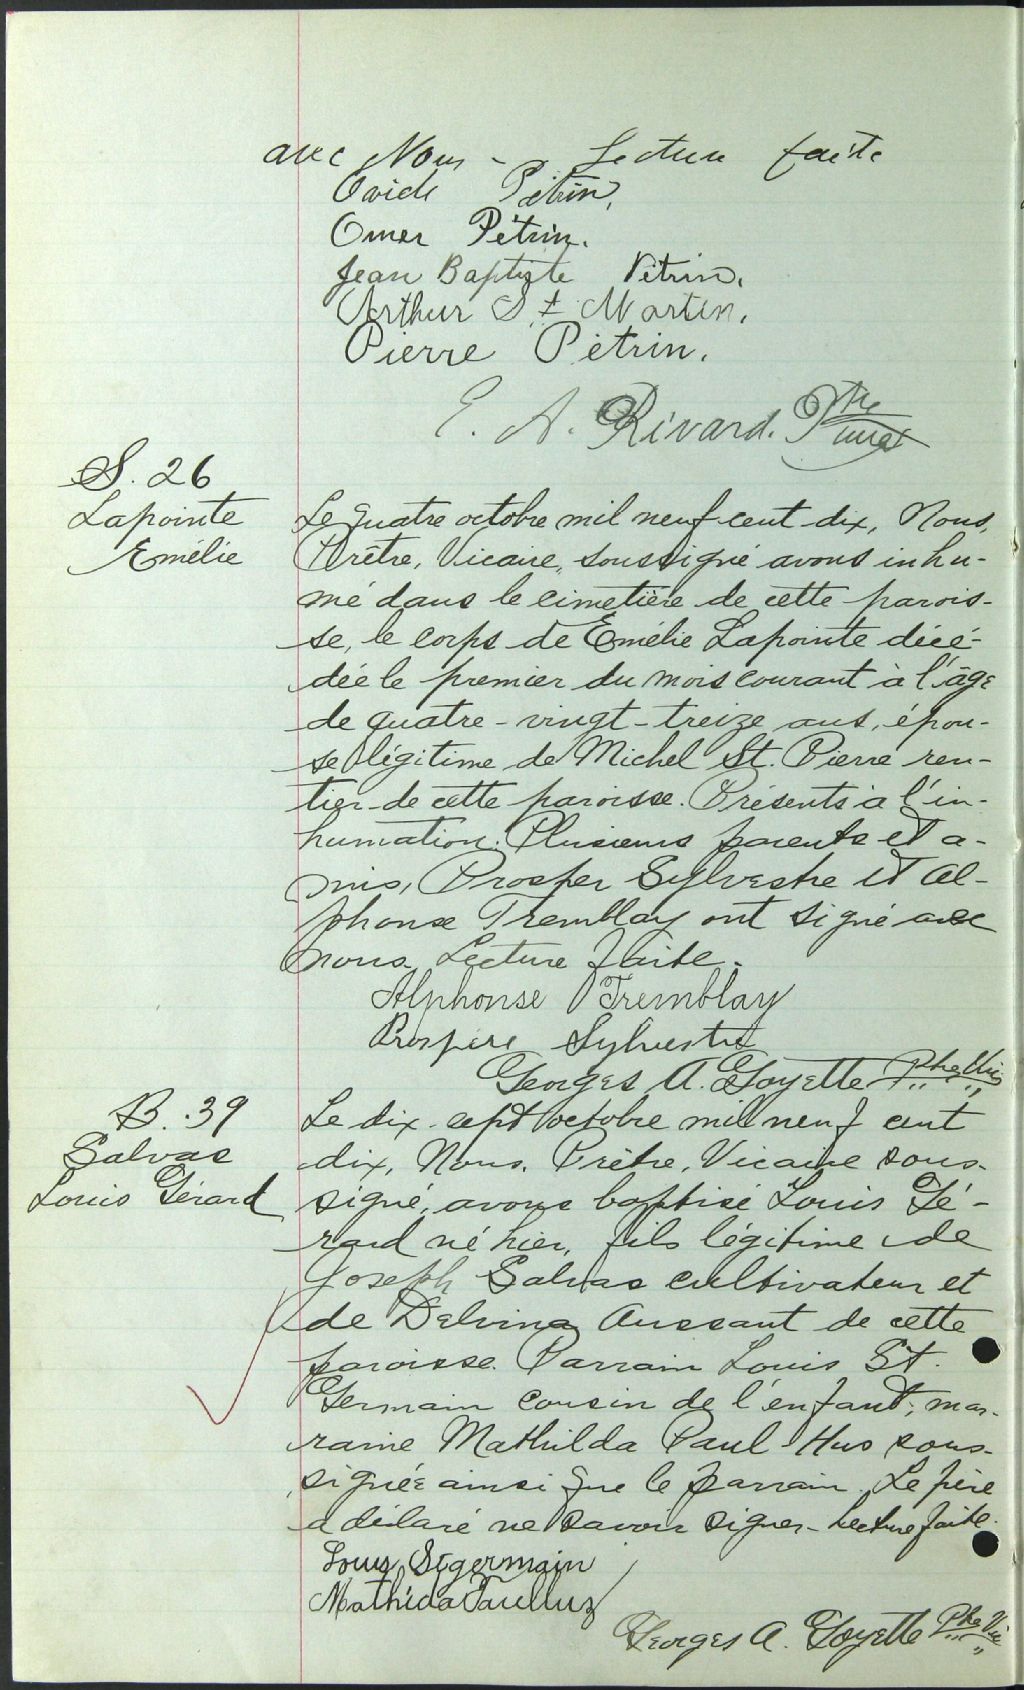 avec Nous - Lecture faite
Ovide Pétrin,
Omer Pétrin.
Jean Baptiste Pétrin.
Arthur St Martin.
Pierre Pétrin.
E. A. Rivard. Ptre
curé
S. 26
Lapointe
Emélie
Le quatre octobre mil neuf cent dix, Nous,
Prêtre, Vicaire, soussigné avons inhu-
mé dans le cimetière de cette parois-
se, le corps de Emélie Lapointe décé-
dée le premier du mois courant à l'âge
de quatre-vingt-treize ans, épou-
se légitime de Michel St. Pierre ren-
tier de cette paroisse. Présents à l'in-
humation: Plusieurs parents et a-
mis, Prosper Sylvestre et Al-
phonse Tremblay ont signé avec
nous. Lecture faite.
Alphonse Tremblay
Prospère Sylvestre
Georges A. Goyette Ptre Vic
B. 39
Salvas
Louis Gérard
Le dix-sept octobre mil neuf cent
dix, Nous, Prêtre, Vicaire sous-
signé, avons baptisé Louis Gé-
rard né hier, fils légitime de
Joseph Salvas cultivateur et
de Delvina Aussant de cette
paroisse. Parrain Louis St.
Germain cousin de l'enfant; mar-
raine Mathilda Paul-Hus sous-
signée ainsi que le parrain. Le père
a déclaré ne savoir signer - Lecture faite.
Louis Stgermain
Mathilda Paulhus
Georges A. Goyette Ptre Vic